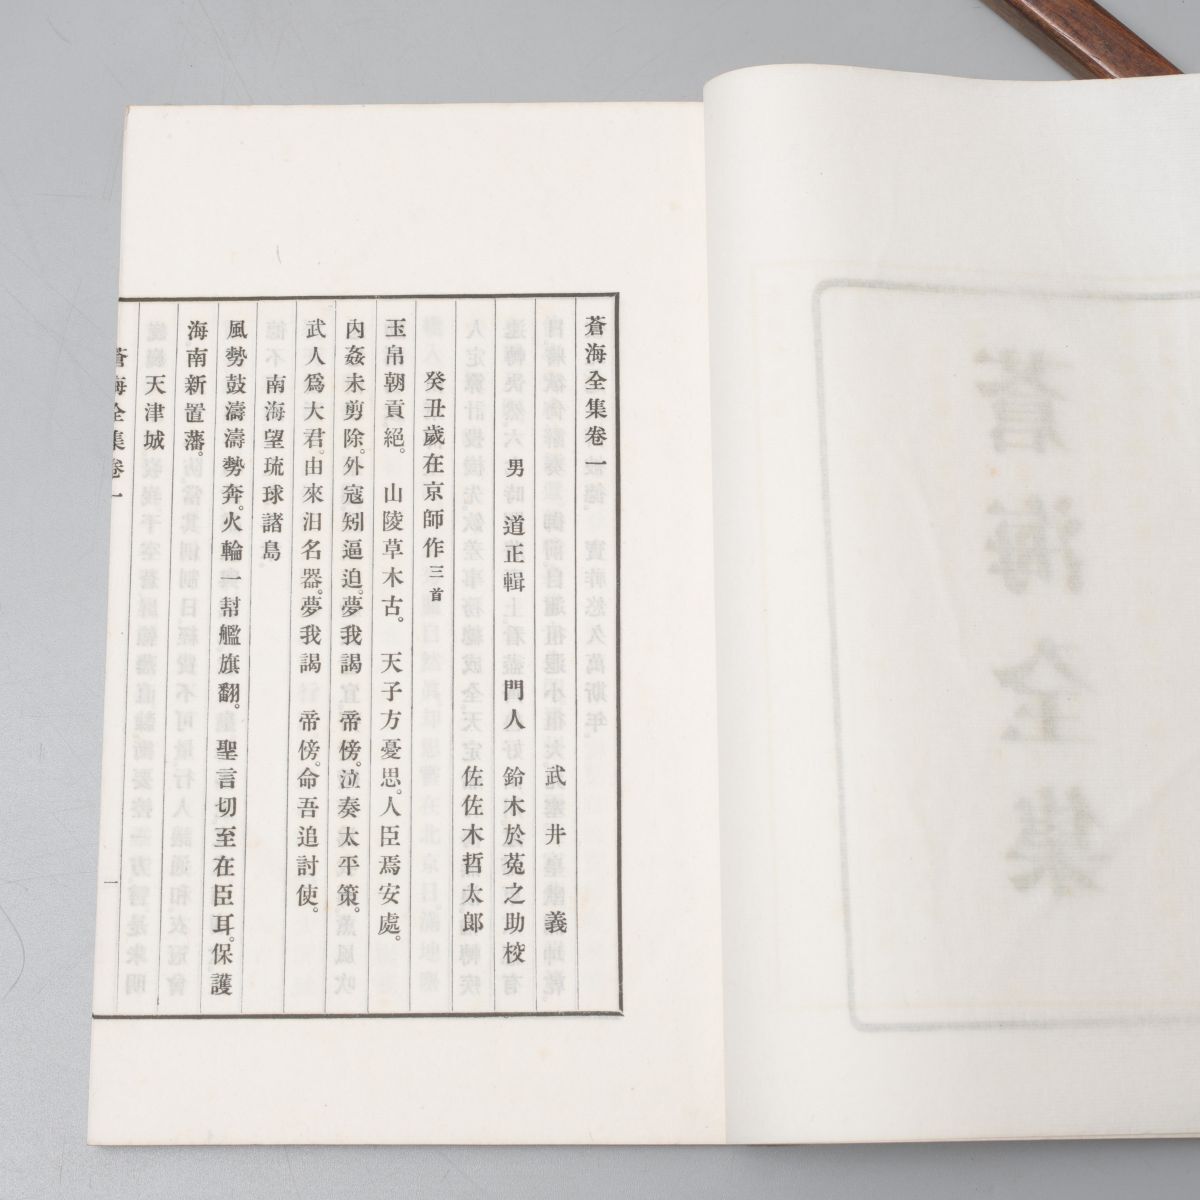 蒼海全集卷一
武井義
男　道正輯　門人　鈴木於菟之助校
佐佐木哲太郎
癸丑歲在京師作三首
玉帛朝貢絕。山陵草木古。天子方憂思。人臣焉安處。
內姦未剪除。外寇矧逼迫。夢我謁　帝傍。泣奏太平策。
武人爲大君。由來汨名器。夢我謁　帝傍。命吾追討使。
南海望琉球諸島
風勢鼓濤濤勢奔。火輪一幇艦旗翻。聖言切至在臣耳。保護
海南新置藩。
天津城
蒼海全集卷一
一
蒼海全集